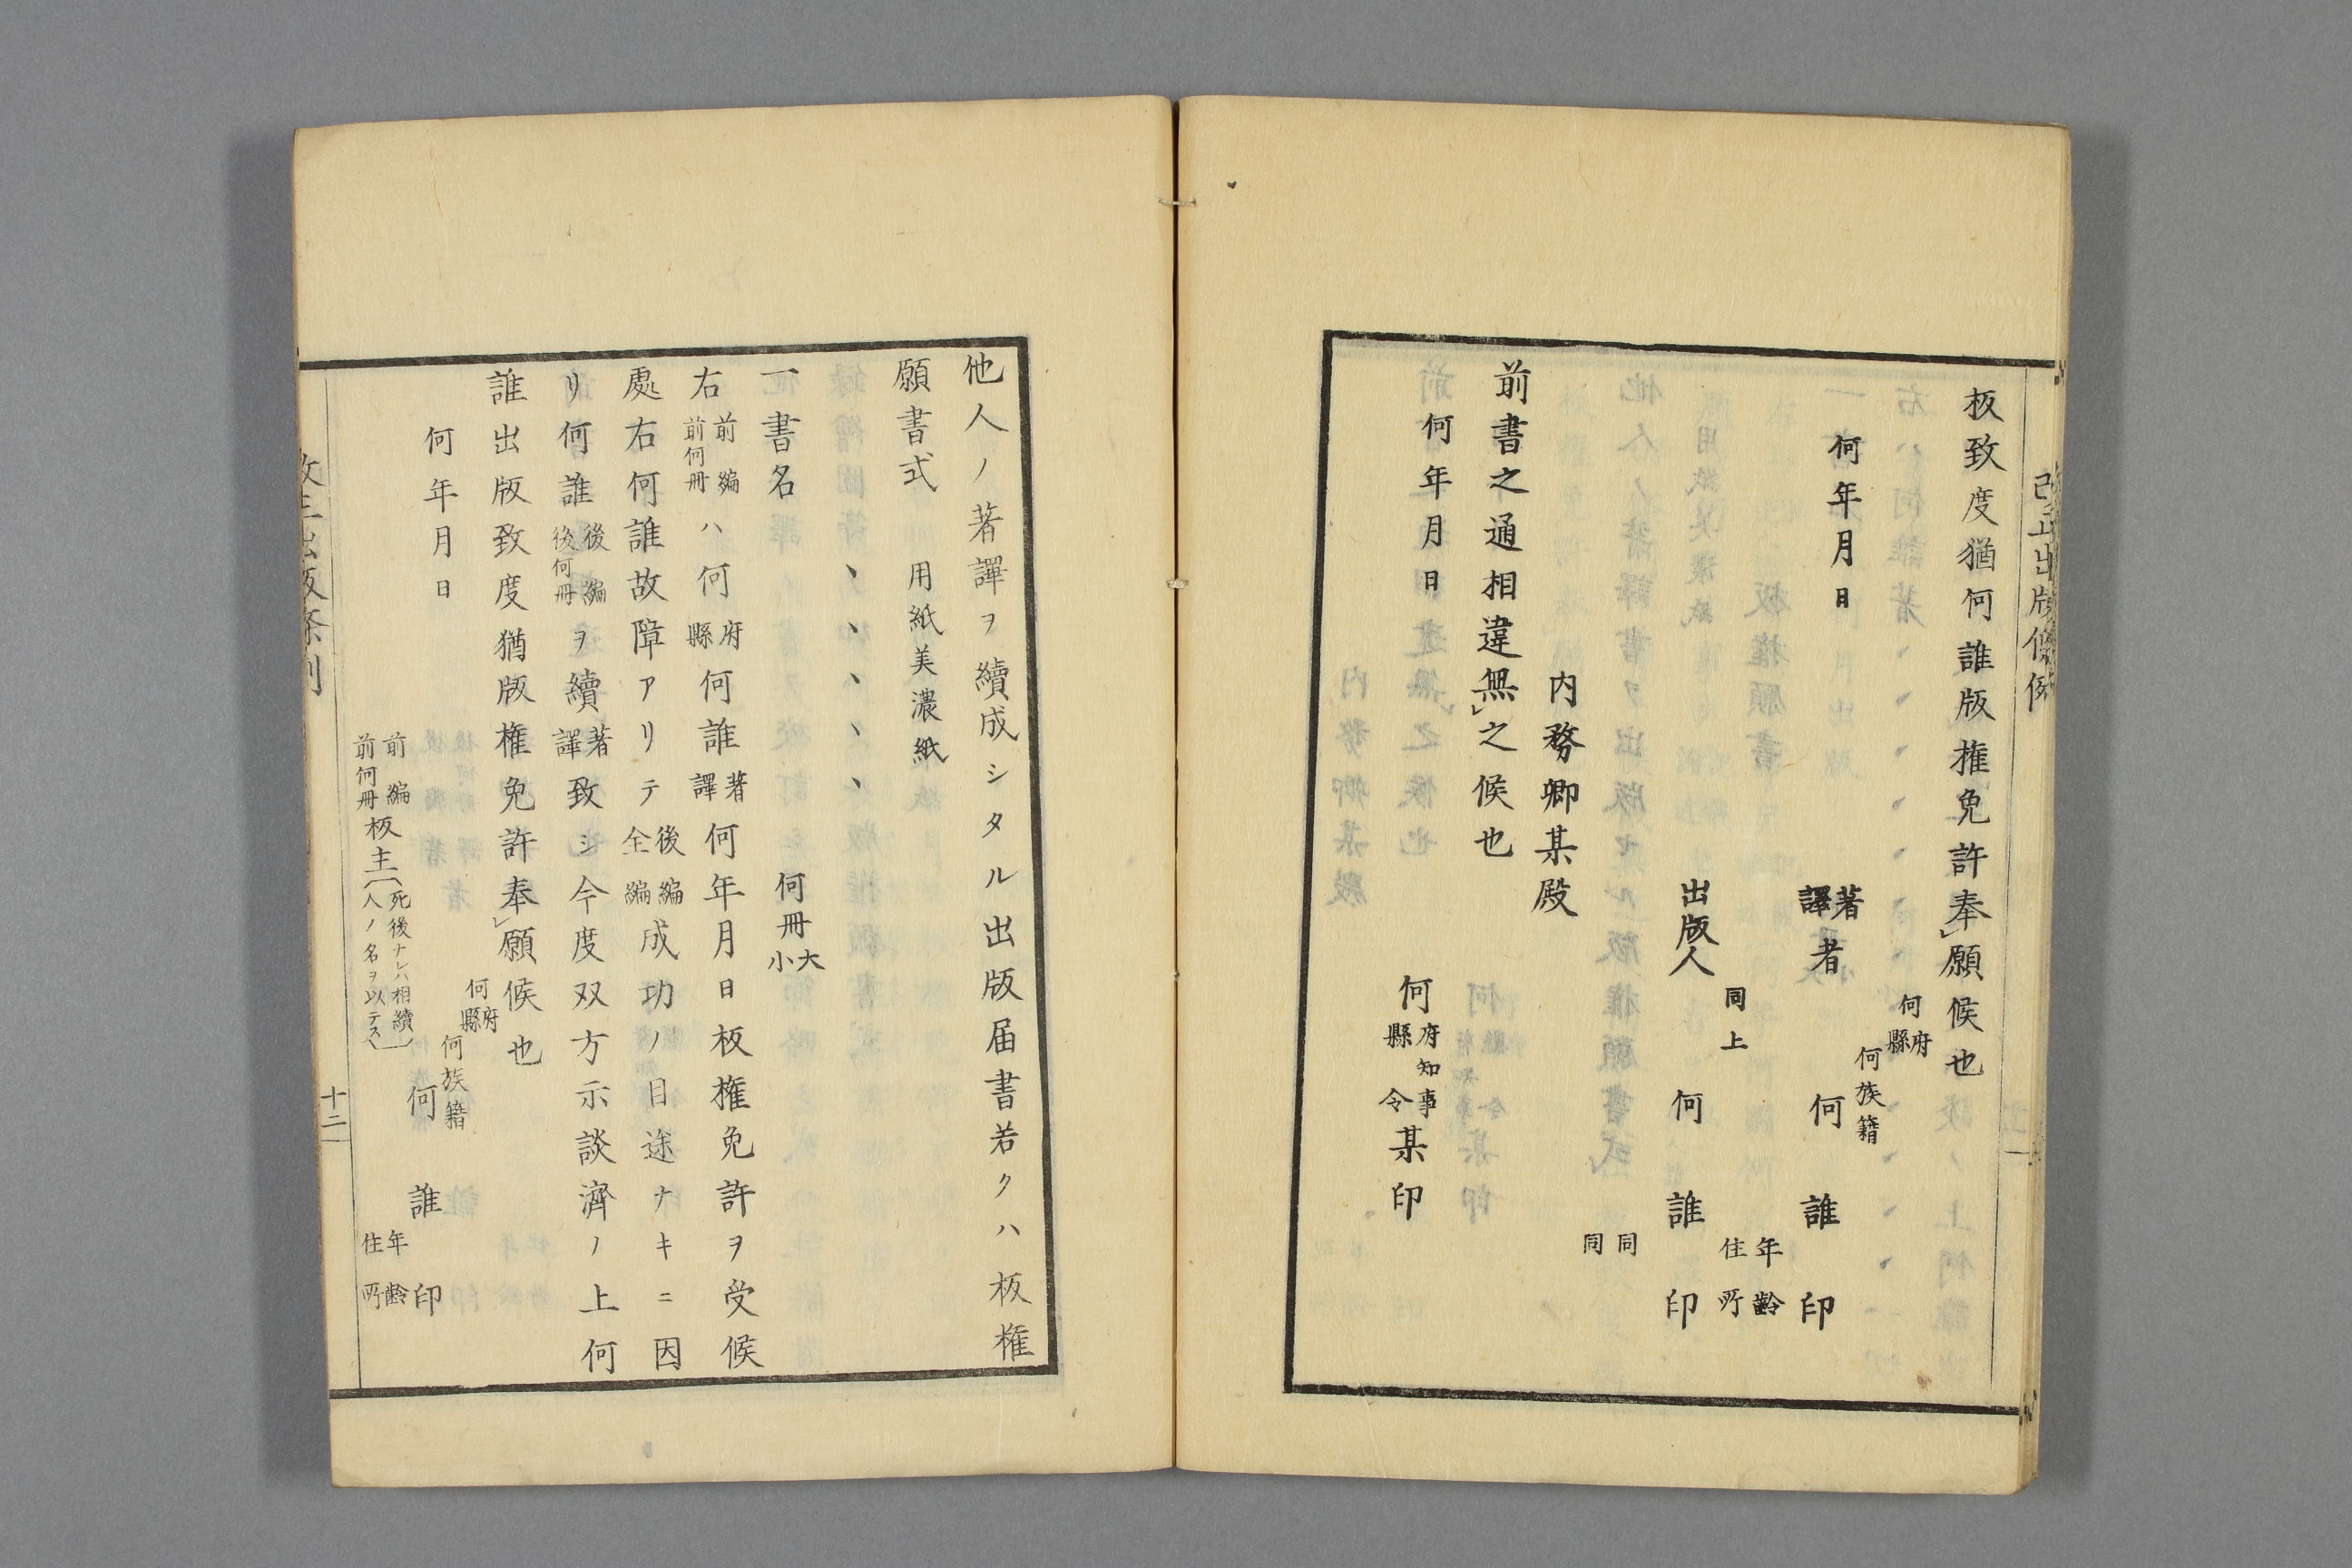 板致度猶何誰版権免許奉願候也
何年月日
何府縣
何族籍
著譯者 何誰 印
年齢
住所
同上
出版人 何誰 印
同
同
内務卿某殿
前書之通相違無之候也
何年月日
何府知事縣令某印
他人ノ著譯ヲ續成シタル出版届書若クハ板権
願書式 用紙美濃紙
一書名、、、、、 何冊大小
右前編前何冊ハ何府縣何誰著譯何年月日板権免許ヲ受候
處右何誰故障アリテ後編全編成功ノ目途ナキニ因
リ何誰後編後何冊ヲ續著譯致シ今度双方示談濟ノ上何
誰出版致度猶版権免許奉願候也
何年月日
何府縣
何族籍
前編前何冊板主(死後ナレハ相續人ノ名ヲ以テス) 何誰 印
年齢
住所
十二